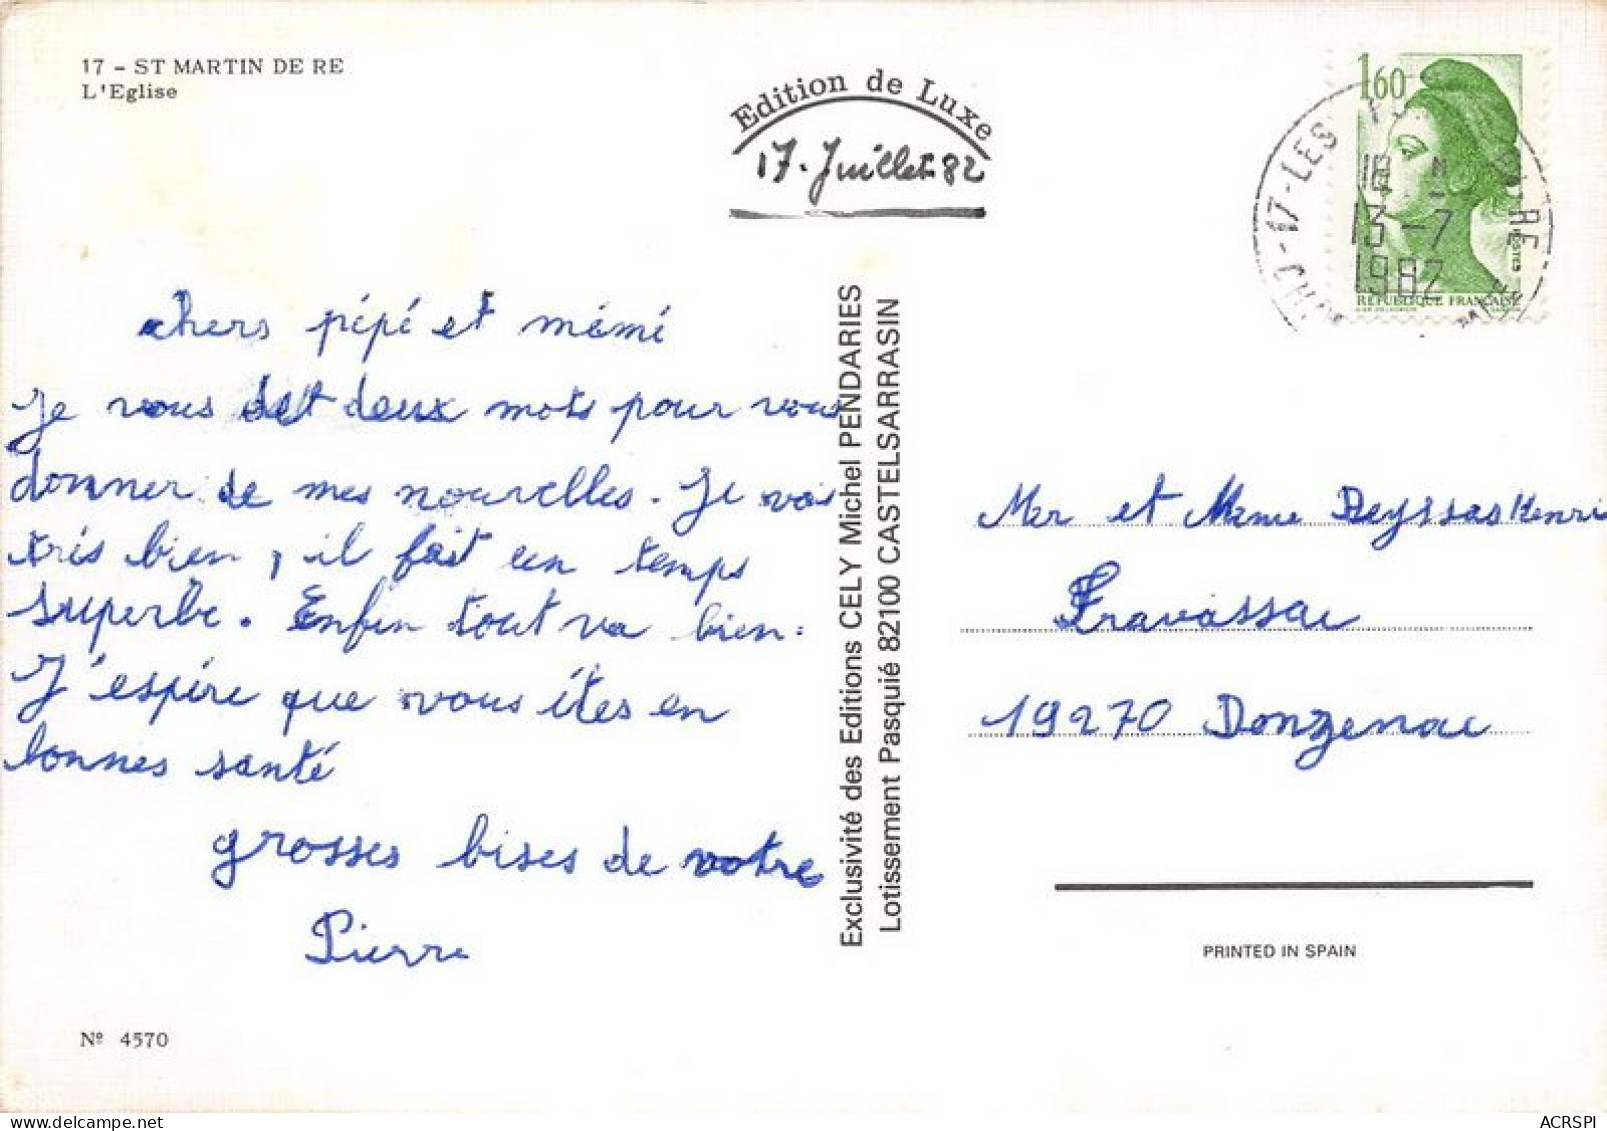 17 - ST MARTIN DE RE
L'Eglise
Edition de Luxe
17. Juillet 82
1,60
18 H
13-7
1982
17-LES
RE
POSTES
REPUBLIQUE FRANÇAISE
chers pépé et mémé
Je vous deux mots pour vous
donner de mes nouvelles. Je vais
trés bien, il fait un temps
superbe. Enfin tout va bien.
J'espére que vous étes en
bonnes santé
grosses bises de votre
Pierre
Nº 4570
Exclusivité des Editions CELY Michel PENDARIES
Lotissement Pasquié 82100 CASTELSARRASIN
Mer et Mme Deyssas Henri
Travassac
19270 Donzenac
PRINTED IN SPAIN
ACRSPI